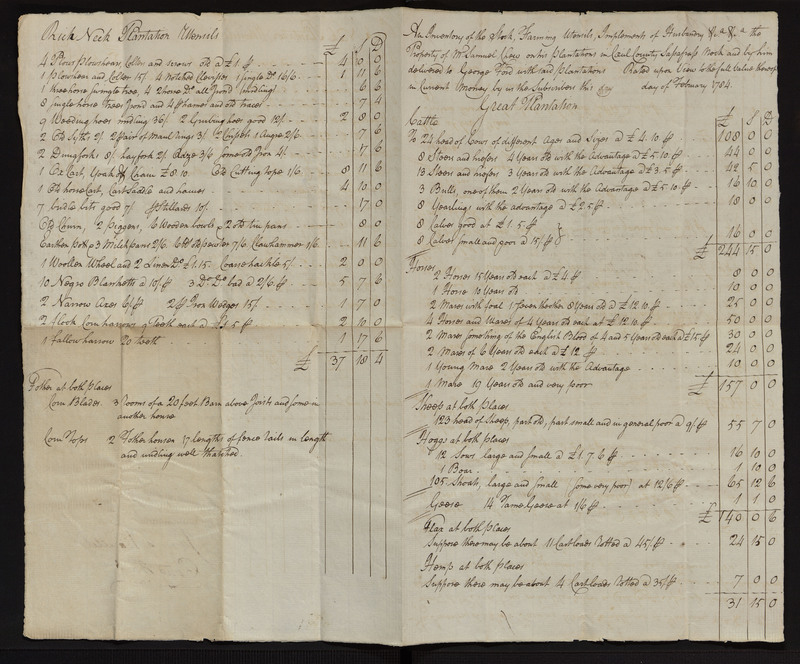 Rich Neck Plantation Utensils £ S D
4 Plows plowshears, Collers and screws old a £1 ⅌ 4 0 0
1 plowshear and Colter 15/ 4 Notched Clevisses 1 single Do 16/6 1 11 6
1 three horse swingle tree, 4 2 horse Do all good 6 6
8 single horse Trees good and 4 ⅌ hames and old traces 7 4
9 Weeding hoes midling 36/ 2 Grubing hoes good 12/ 2 8 0
2 Old Sythes 2/ 2 ⅌air of Maul Rings 3/ 2 Chissels 1 Augre 2/6 7 6
2 Dungforks 8/ hay fork 2/ Adze 3/6 some old Iron 4/ 17 6
1 Ox Cart, Yoak & Chain £8 10 Old Cutting Rope 1/6 8 11 6
1 Old horse Cart, Cart Saddle and hames 4 10 0
7 bridle bits good 7/ ⅌ Stillards 10/ 17 0
Old Churn, 2 piggens, 6 Wooden bowls & 2 old tin pans 8 0
Earthen pots & 3 Milk pans 2/6 6 lb old pewter 7/6 Claw hammer 1/6 11 6
1 Woollen Wheel and 2 Linen Do £1.15 Coarse hackle 5/ 2 0 0
10 Negro Blanketts a 10/ ⅌ 3 Do Do bad a 2/6 ⅌ 5 7 6
2 Narrow Axes 6/ ⅌ 2 ⅌ Iron Wedges 15/ 1 7 0
2 flook Corn harrows 9 Teeth each a £1 5 ⅌ 2 10 0
1 fallow harrow 20 teeth 1 17 6
£ 37 18 4
Fother at both places
Corn Blades 3 Rooms of a 20 foot Barn above Joists and some in
another house
Corn Tops 2 Fother houses 17 lengths of fence rails in length
and midling well thatched
An Inventory of the Stock, Farming Utensils, Implements of Husbandry &ca &ca the
Property of Mr Samuel on his Plantations in Cecil County, Sassafrass Neck and by him
delivered to George Ford with said Plantations Rated upon View to the full Value thereof
in Current Money by us the Subscribers this day of February 1784.
Great Plantation
Cattle £ S D
To 24 head of Cows of different Ages and Sizes a £4.10 ⅌ 108 0 0
8 Steers and heifers 4 Years old with the Advantage a £5.10 ⅌ 44 0 0
13 Steers and heifers 3 Years old with the Advantage a £3.5 ⅌ 42 5 0
3 Bulls, one of them 2 Years old with the Advantage a £5.10 ⅌ 16 10 0
8 Yearlings with the advantage a £2.5 ⅌ 18 0 0
8 Calves good at £1.5 ⅌
8 Calves small and poor a 15/ ⅌ 16 0 0
£ 244 15 0
Horses
2 Horses 15 Years old each a £4 ⅌ 8 0 0
1 Horse 10 Years old 10 0 0
2 Mares with foal 1 7 Years the other 8 Years old a £12.10 ⅌ 25 0 0
4 Horses and Mares of 4 Years old each at £12.10 ⅌ 50 0 0
2 Mares something of the English Blood of 4 and 5 Years old each a £15 ⅌ 30 0 0
2 Mares of 6 Years old each a £12 ⅌ 24 0 0
1 Young Mare 2 Years old with the Advantage 10 0 0
1 Mare 19 Years old and very poor
£ 157 0 0
Sheep at both places
123 head of Sheep, part old, part small and in general poor a 9/ ⅌ 55 7 0
Hoggs at both places
12 Sows large and small a £1.7.6 ⅌ 16 10 0
1 Boar 1 10 0
105 Shoats, large and small some very poor at 12/6 ⅌ 65 12 6
Geese 14 Tame Geese at 1/6 ⅌ 1 1 0
£ 140 0 6
Flax at both places
Suppose there may be about 11 Cart loads Rotted a 45/ ⅌ 24 15 0
Hemp at both places
Suppose there may be about 4 Cart loads Rotted a 35/ ⅌ 7 0 0
31 15 0